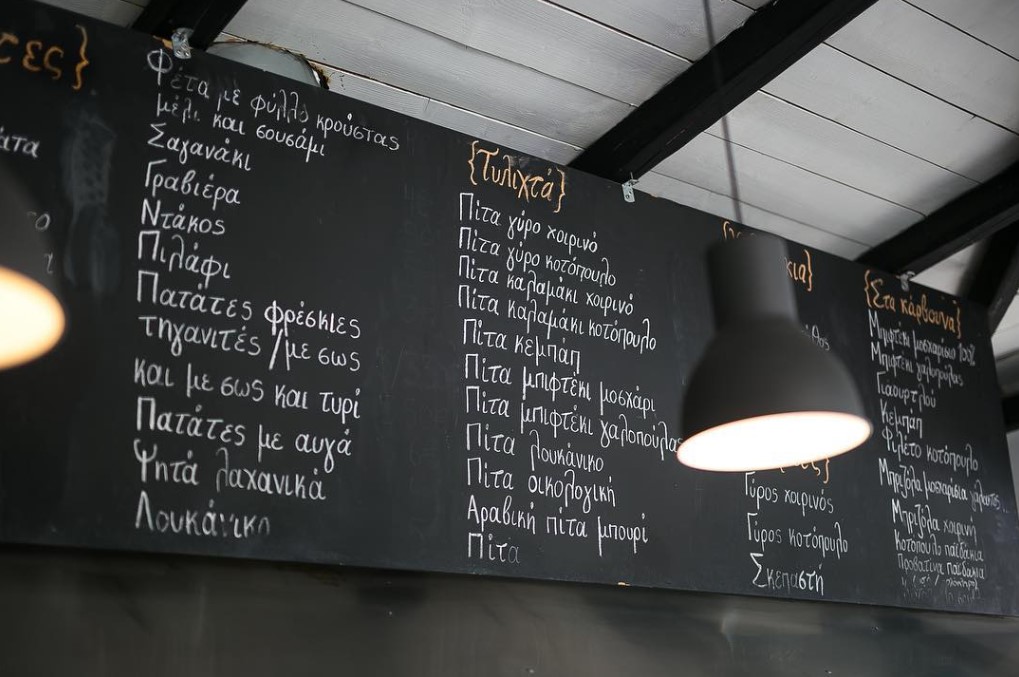 ες}
άτα
Φέτα με φύλλο κρούστας
μέλι και σουσάμι
Σαγανάκι
Γραβιέρα
Ντάκος
Πιλάφι
Πατάτες φρέσκιες
τηγανιτές /με σως
και με σως και τυρί
Πατάτες με αυγά
Ψητά λαχανικά
Λουκάνικο
{Τυλιχτά}
Πίτα γύρο χοιρινό
Πίτα γύρο κοτόπουλο
Πίτα καλαμάκι χοιρινό
Πίτα καλαμάκι κοτόπουλο
Πίτα κεμπάπ
Πίτα μπιφτέκι μοσχάρι
Πίτα μπιφτέκι γαλοπούλας
Πίτα λουκάνικο
Πίτα οικολογική
Αραβική πίτα μπουρί
Πίτα
κια}
Γύρος χοιρινός
Γύρος κοτόπουλο
Σκεπαστή
{Στα κάρβουνα}
Μπιφτέκι μοσχαρίσιο 100%
Μπιφτέκι γαλοπούλας
Γιαουρτλού
Κεμπάπ
Φιλέτο κοτόπουλο
Μπριζόλα μοσχαρίσια γάλακτος
Μπριζόλα χοιρινή
Κοτόπουλο παϊδάκια
Προβατίνα παϊδάκια